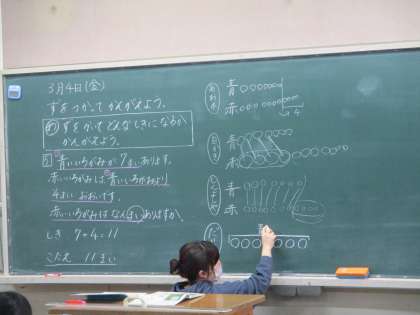 3月4日(金)
ずをつかって かんがえよう。
め ずをかいて どんなしきになるか
かんがえよう。
もん 青いいろがみが 7まいあります。
赤いいろがみは、青いいろがみより
4まい おおいです。
赤いいろがみは なんまいありますか。
しき 7+4=11
こたえ 11まい
青
赤
4
青
赤
青
赤